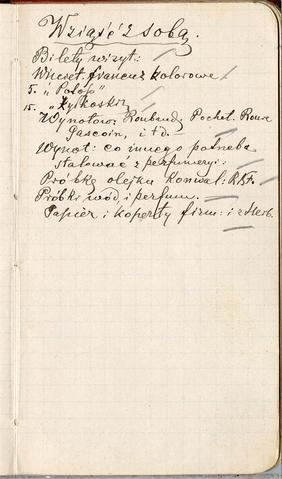 Wziąść z sobą.
Bilety wizyt:
Winiet. francuz kolorowe
5. „Polo”
15. „Kyk
Wynotow: Roubaud, Pochet. Roure
Gascoin, i t d.
Wynot: co innego potrzeba
stalować z perfumery:
Próbkę olejku Konwal: R&F.
Próbki wód i perfum.
Papier i koperty firm: i z Herb.